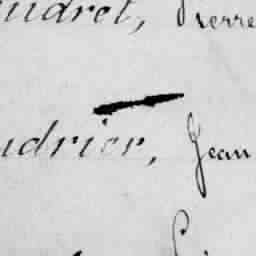 udret, Pierre
udrier, Jean